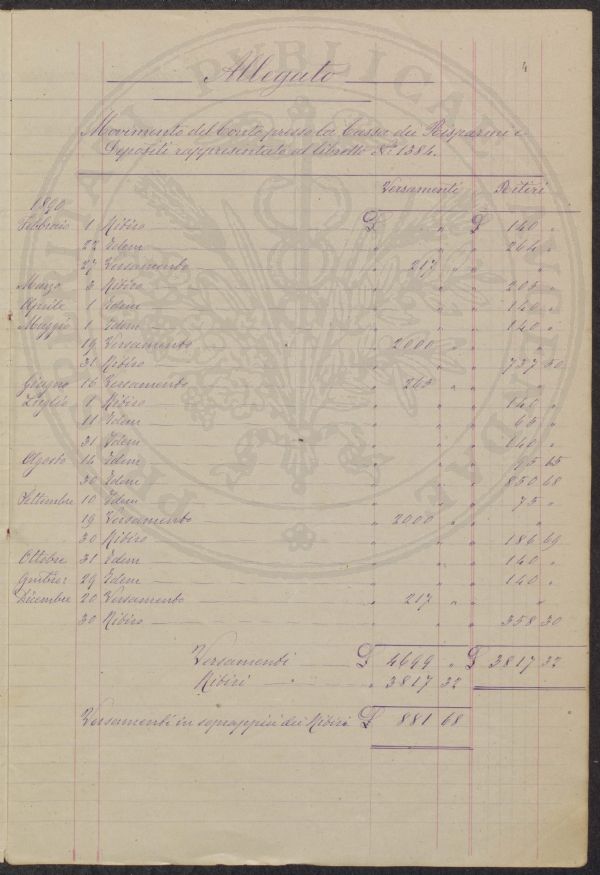 PROSPERITATI PUBLICAE AUGENDAE
4
Allegato
Movimento del Conto presso la Cassa dei Risparmi e
Depositi rappresentato al libretto N.º 1384.
Versamenti Ritiri
1890
Febbraio 1 Ritiro £ " " £ 140 "
22 Idem " " " 264 "
27 Versamento " 217 " " "
Marzo 3 Ritiro " " " 205 "
Aprile 1 Idem " " " 140 "
Maggio 1 Idem " " " 140 "
19 Versamento " 2000 " " "
31 Ritiro " " " 737 50
Giugno 16 Versamento " 265 " " "
Luglio 1 Ritiro " " " 140 "
11 Idem " " " 65 "
31 Idem " " " 140 "
Agosto 14 Idem " " " 95 15
30 Idem " " " 850 68
Settembre 10 Idem " " " 75 "
19 Versamento " 2000 " " "
30 Ritiro " " " 186 69
Ottobre 31 Idem " " " 140 "
29 Idem " " " 140 "
Dicembre 20 Versamento " 217 " " "
30 Ritiro " " " 358 30
Versamenti £ 4699 " £ 3817 32
Ritiri " 3817 32
Versamenti in soprappiù dei Ritiri £ 881 68